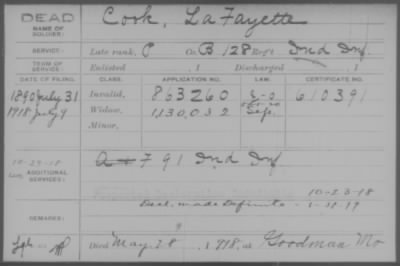 DEAD
NAME OF SOLDIER:
Cook, LaFayette
SERVICE:
Late rank, P Co. B, 128 Reg't Ind Inf
TERM OF SERVICE:
Enlisted , 1 Discharged , 1
DATE OF FILING. CLASS. APPLICATION NO. LAW. CERTIFICATE NO.
1890 July 31 Invalid, 863260 610391
1918 July 9 Widow, 1,130,032
Minor,
10-29-18
ADDITIONAL SERVICES:
791 Ind Inf
10-23-18
Decl. made Definite
REMARKS:
Died May 28, 1918, at Goodman Mo